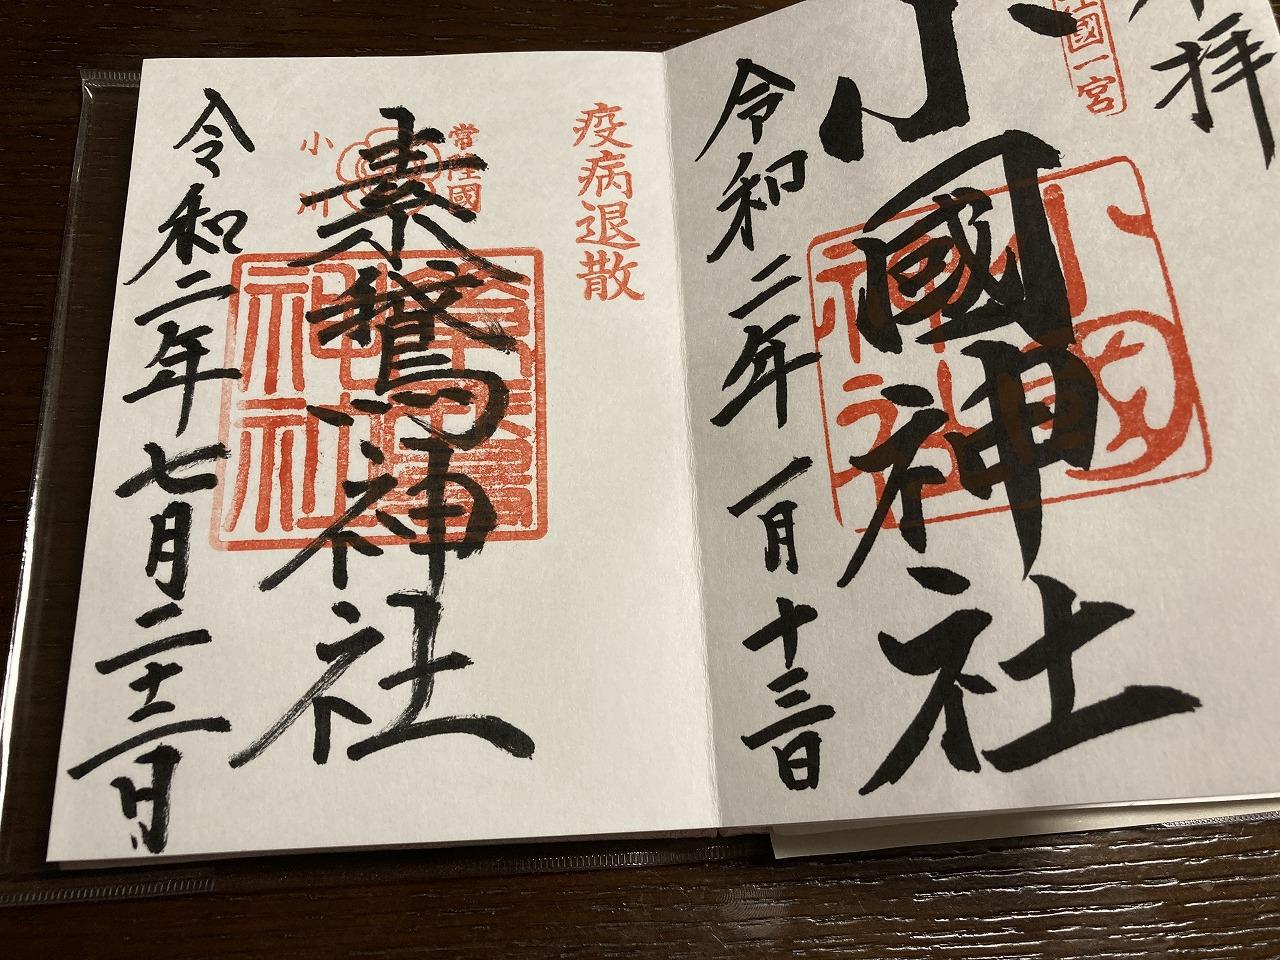 拝
國一宮
小國神社
小國神社
令和二年一月十三日
疫病退散
常陸國
小川
素鵞神社
令和二年七月二十二日